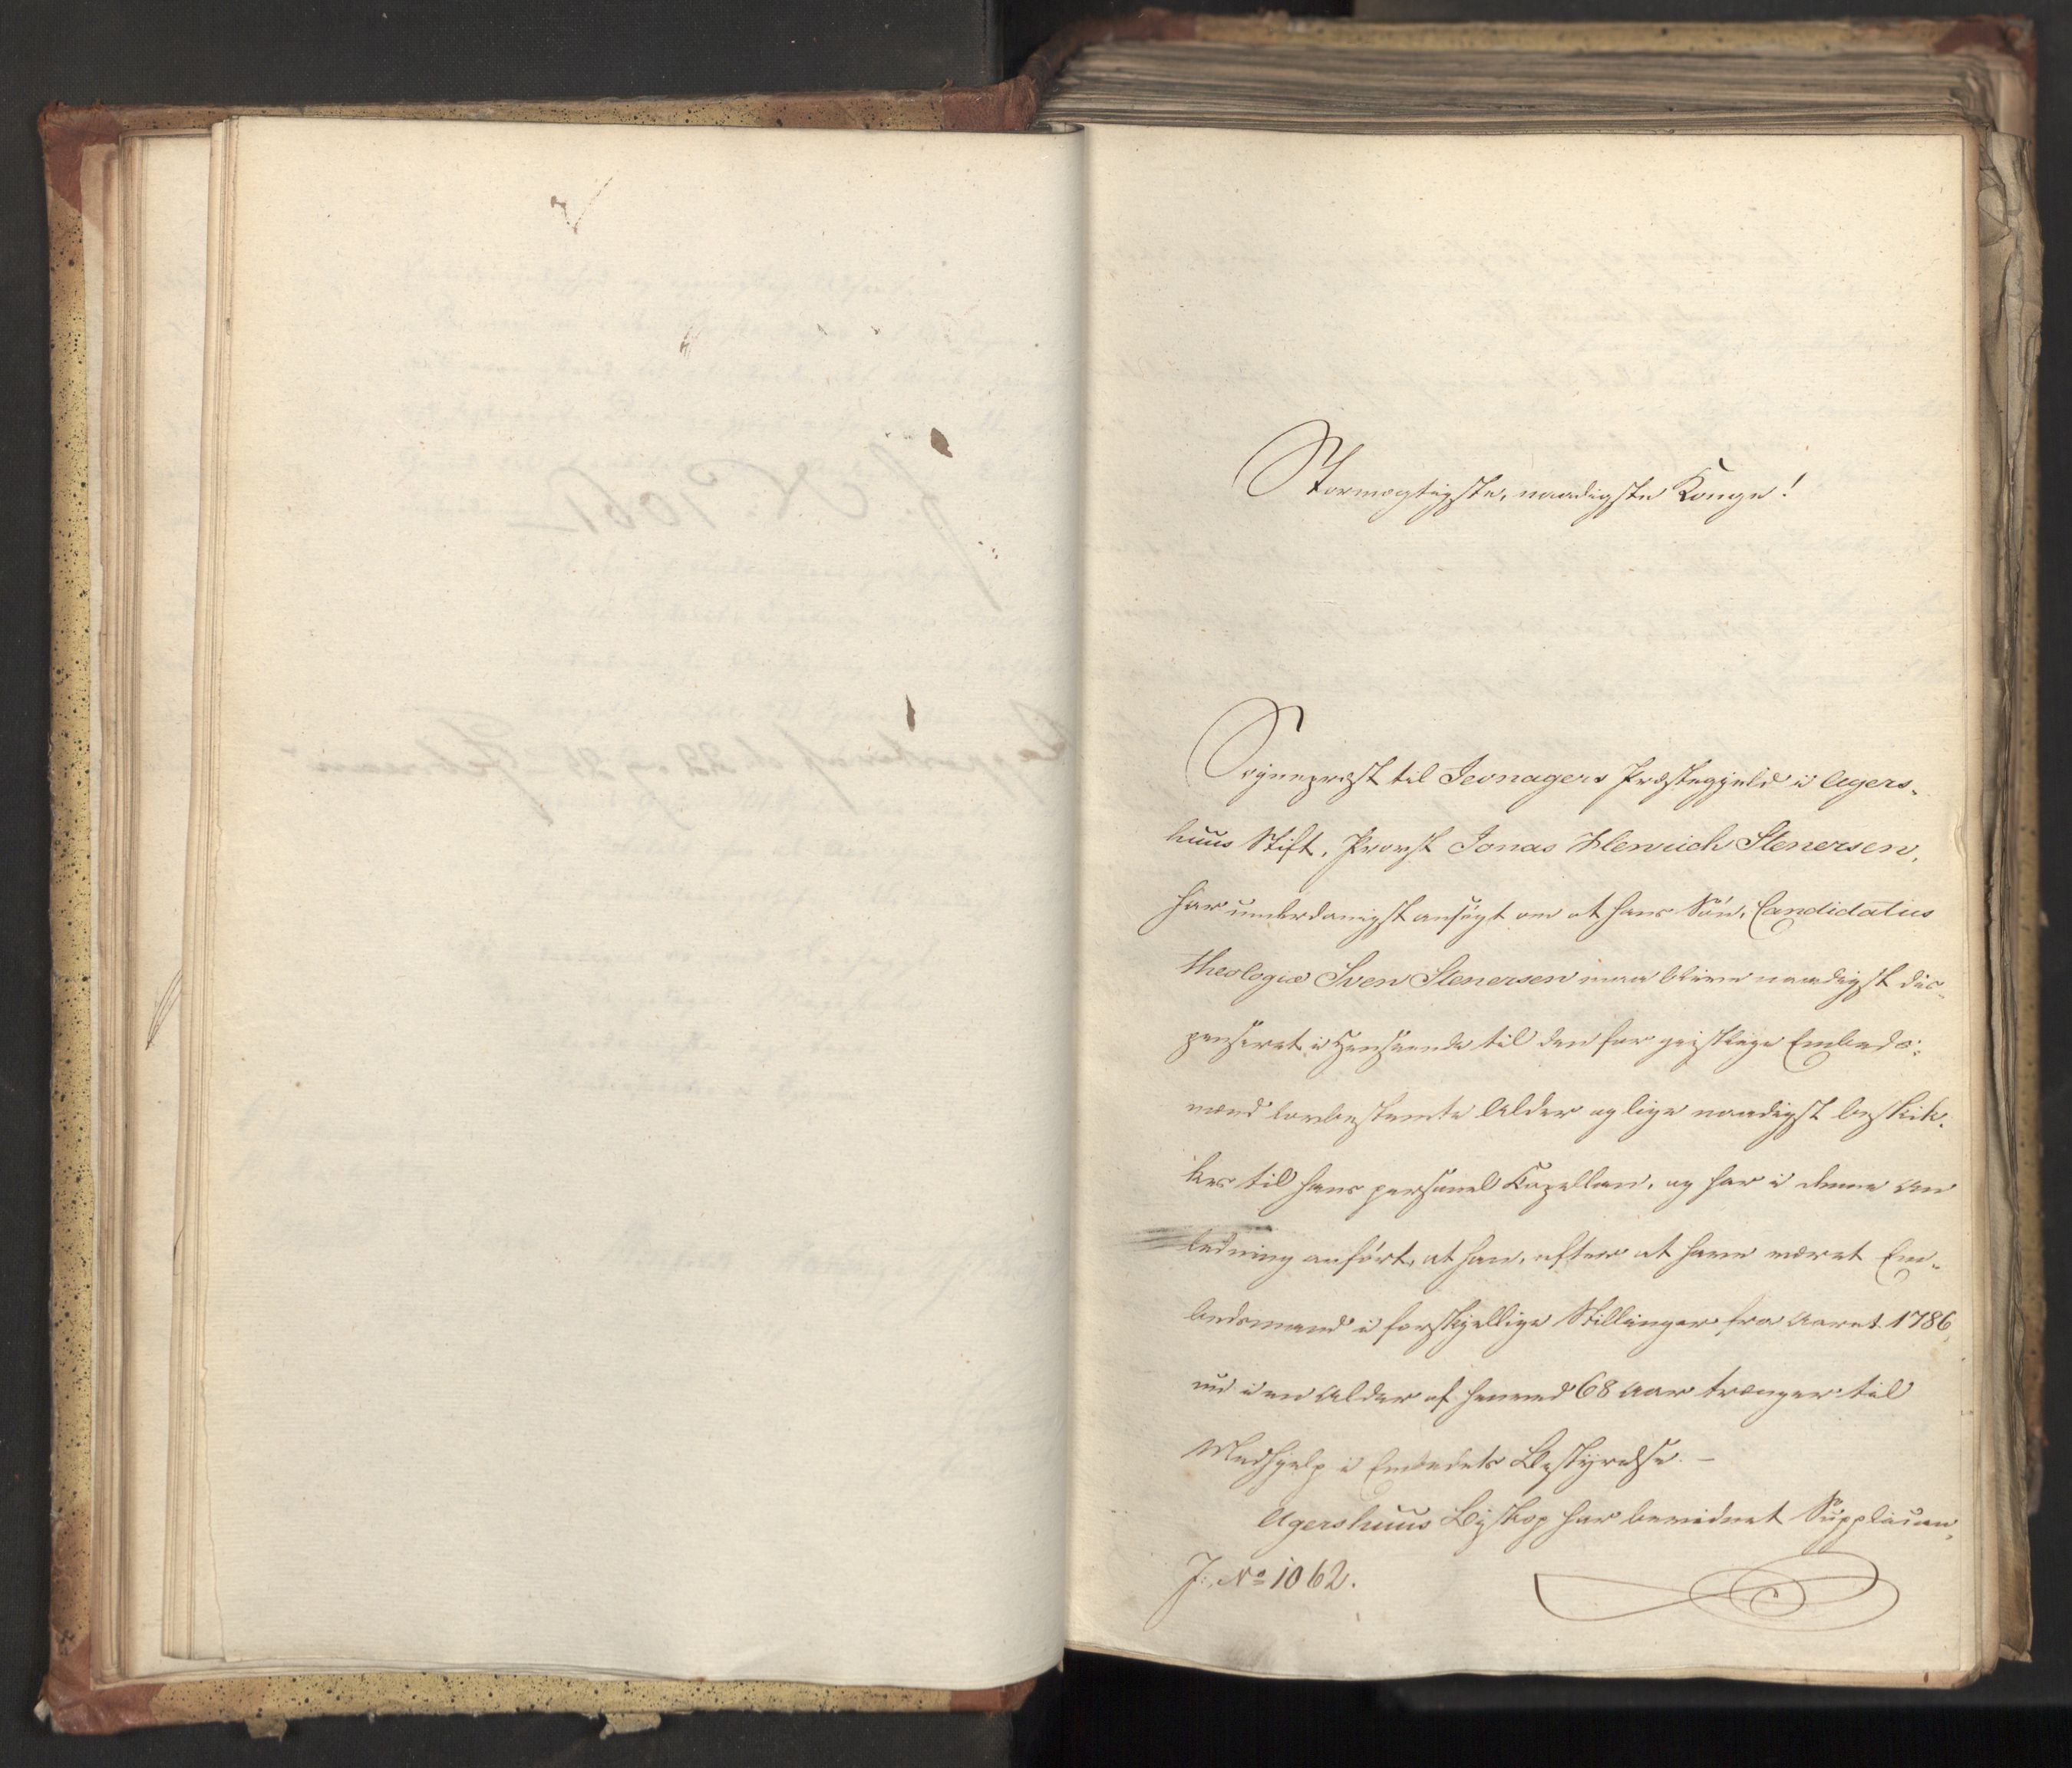 Stormægtigste, naadigste Konge!
Sognepræst til Jevnagers Præstegjeld i Agers-
huus Stift, Provst Jonas Henrich Stenersen,
har underdanigst ansøgt om at hans Søn, Candidatus
theologiæ Sven Stenersen maa blive naadigst dis-
penseret i Henseende til den for geistlige Embeds-
mænd lovbestemte Alder og lige naadigst beskik-
kes til hans personel Kapellan, og har i denne An
ledning anført, at han, efter at have været Em-
bedsmand i forskjellige Stillinger fra Aaret 1786,
nu i en Alder af henved 68 Aar trænger til
Medhjelp i Embedets Bestyrelse. –
Agershuus Biskop har bevidnet Supplican-
J: No 1062.